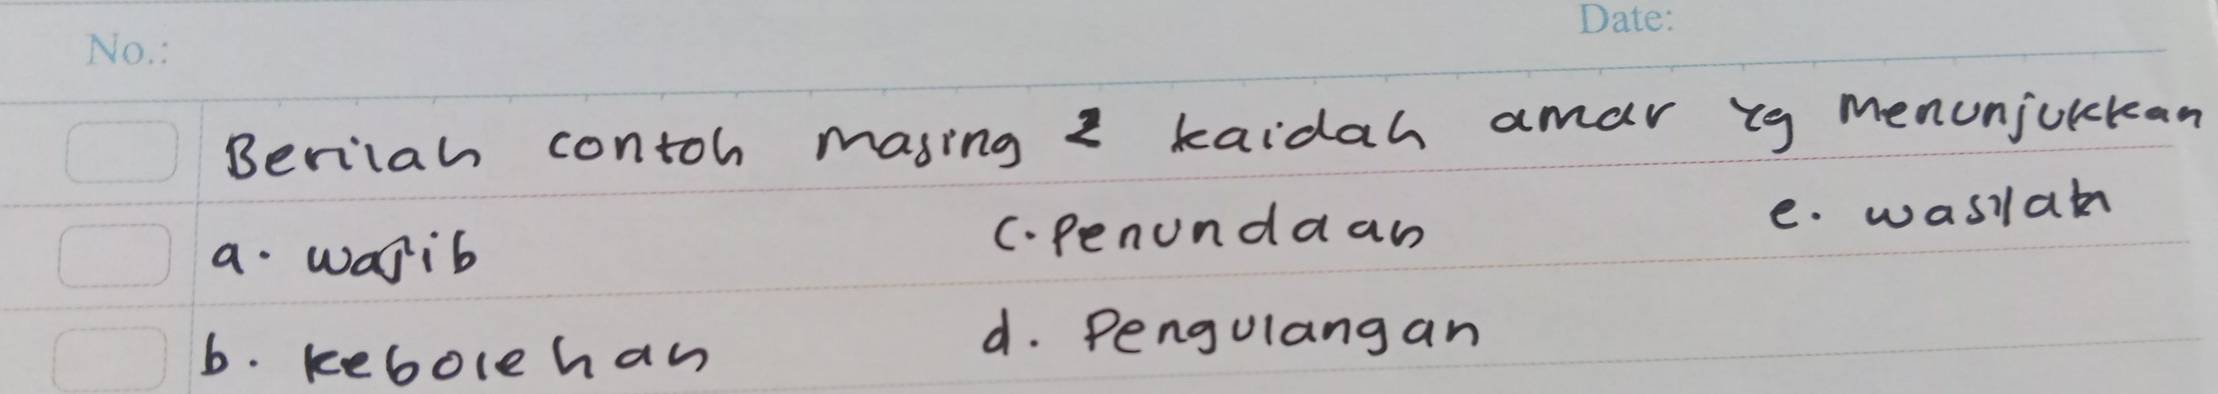 No.: Date:
Berilah contoh masing 2 kaidah amar yg menunjukkan
a. wajib c. Penundaan e. wasilah
b. kebolehan d. Pengulangan